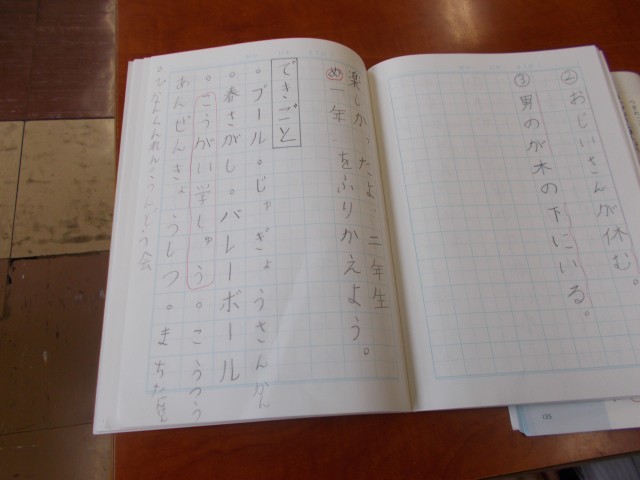 ②おじいさんが休む。
③男のが木の下にいる。
楽しかったよ 二年生
め 一年 をふりかえよう。
できごと
。プール。じゅぎょうさんかん
。春さがし。バレーボール
。こうがい学しゅう。こうつう
あんぜんきょうしつ。まちたん
。ひなんくんれん うんどう会